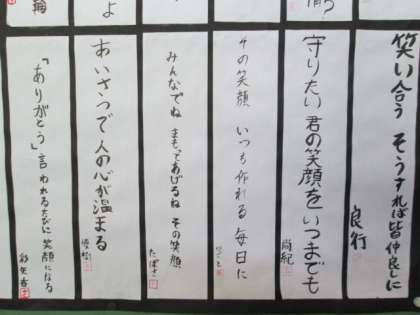 笑い合う そうすれば皆 仲良しに
良行
守りたい 君の笑顔を いつまでも
尚紀
その笑顔 いつも作れる 毎日に
みんなでね まもってあげるね その笑顔
たばさ
あいさつで 人の心が 温まる
「ありがとう」 言われるたびに 笑顔になる